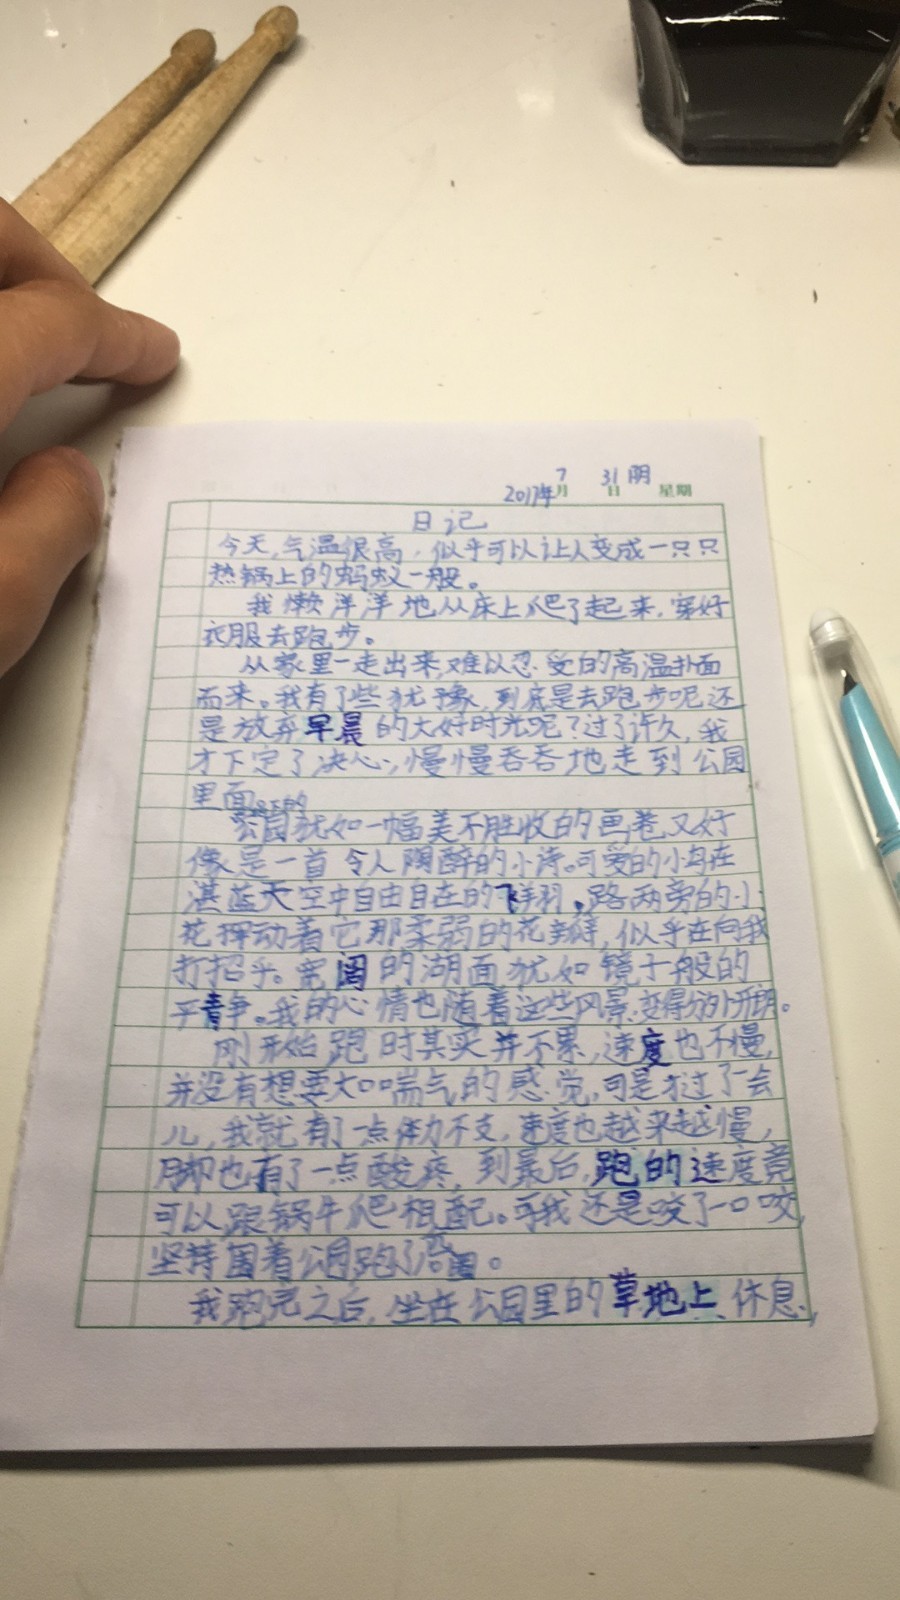 2017年7月31日 阴 星期
日记
今天,气温很高,似乎可以让人变成一只只
热锅上的蚂蚁一般。
我懒洋洋地从床上爬了起来,穿好
衣服去跑步。
从家里一走出来,难以忍受的高温扑面
而来。我有了些犹豫,到底是去跑步呢还
是放弃早晨的大好时光呢?过了许久,我
才下定了决心,慢慢吞吞地走到公园
里面。
公园犹如一幅美不胜收的画卷又好
像是一首令人陶醉的小诗。可爱的小鸟在
湛蓝天空中自由自在的飞翔,路两旁的小
花挥动着它那柔弱的花瓣,似乎在向我
打招乎。宽阔的湖面犹如镜子般的
平静。我的心情也随着这些风景变得分外开朗。
刚开始跑时其实并不累,速度也不慢,
并没有想要大口喘气的感觉,可是才过了一会
儿,我就有了一点体力不支,速度也越来越慢,
脚也有了一点酸疼,到最后,跑的速度竟
可以跟蜗牛爬相配。可我还是咬了一口咬,
坚持围着公园跑了圈。
我跑完之后,坐在公园里的草地上休息,